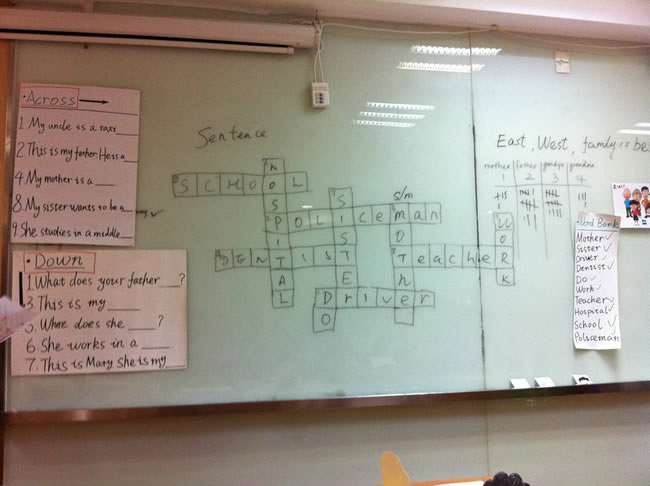 Across
1 My uncle is a taxi
2. This is my father. He is a
4. My mother is a
8. My sister wants to be a
9. She studies in a middle
Down
1. What does your father ?
3. This is my
5. Where does she ?
6. She works in a .
7. This is Mary She is my
Sentence
SCHOOL
HOSPITAL
Policeman
SISTER
s/m
MOTher
WORK
DEnTIST
Teacher
Driver
DO
East, West, family is be
mother father grandpa grandma
1 2 3 4
Word Bank
Mother
Sister
Driver
Dentist
Do
Work
Teacher
Hospital
School
Policeman